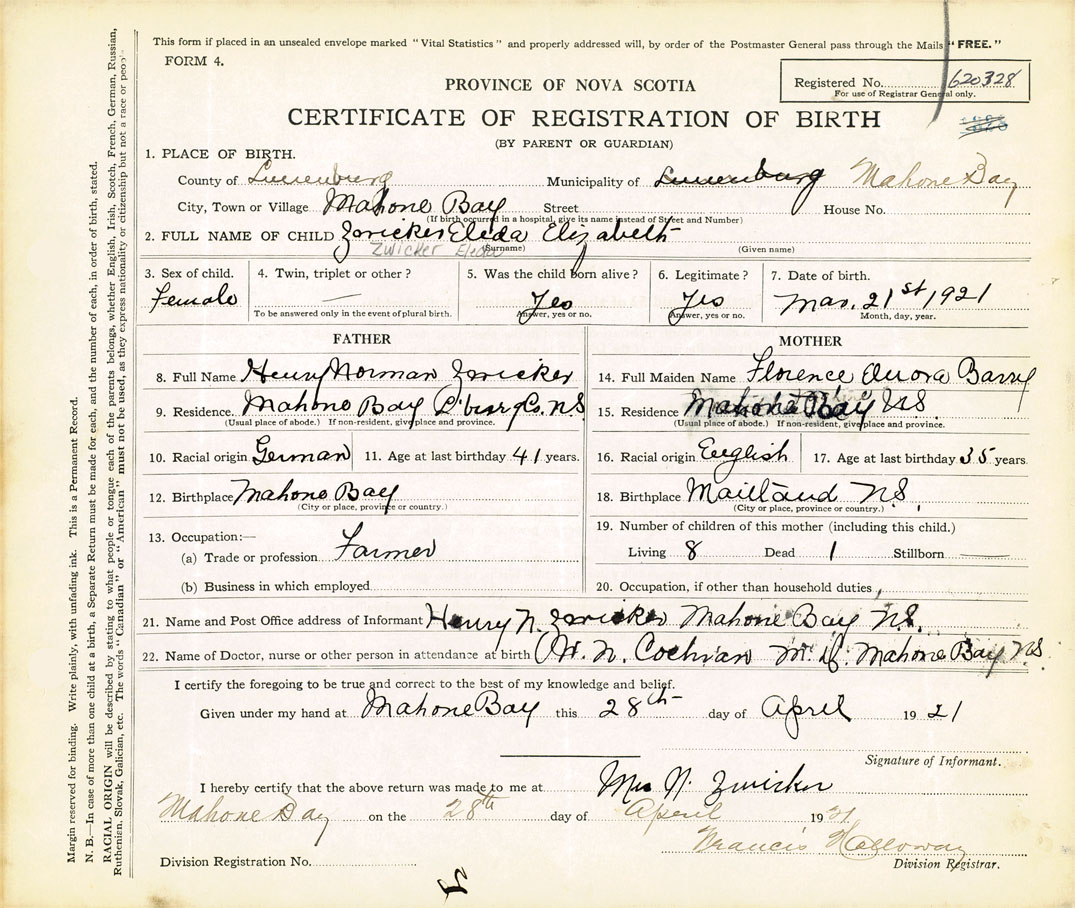 This form if placed in an unsealed envelope marked "Vital Statistics" and properly addressed will, by order of the Postmaster General pass through the Mails "FREE."
FORM 4.
Registered No. 620328
For use of Registrar General only.
PROVINCE OF NOVA SCOTIA
CERTIFICATE OF REGISTRATION OF BIRTH
(BY PARENT OR GUARDIAN)
1. PLACE OF BIRTH.
County of Lunenburg Municipality of Lunenburg Mahone Bay
City, Town or Village Mahone Bay Street House No.
(If birth occurred in a hospital, give its name instead of Street and Number)
2. FULL NAME OF CHILD Zwicker Eleda Elizabeth
Zwicker Eleda (Surname) (Given name)
3. Sex of child. 4. Twin, triplet or other? 5. Was the child born alive? 6. Legitimate? 7. Date of birth.
Female — Yes Yes Mar. 21st, 1921
To be answered only in the event of plural birth. Answer, yes or no. Answer, yes or no. Month, day, year.
FATHER
8. Full Name Henry Norman Zwicker
9. Residence. Mahone Bay L'burg Co. N.S
(Usual place of abode.) If non-resident, give place and province.
10. Racial origin German 11. Age at last birthday 41 years.
12. Birthplace Mahone Bay
(City or place, province or country.)
13. Occupation:—
(a) Trade or profession Farmer
(b) Business in which employed
MOTHER
14. Full Maiden Name Florence Barry
15. Residence Mahone Bay N.S.
(Usual place of abode.) If non-resident, give place and province.
16. Racial origin English 17. Age at last birthday 35 years
18. Birthplace Maitland N.S.
(City or place, province or country.)
19. Number of children of this mother (including this child.)
Living 8 Dead 1 Stillborn —
20. Occupation, if other than household duties
21. Name and Post Office address of Informant Henry N. Zwicker Mahone Bay N.S.
22. Name of Doctor, nurse or other person in attendance at birth W. N. Cochran M.D. Mahone Bay N.S.
I certify the foregoing to be true and correct to the best of my knowledge and belief.
Given under my hand at Mahone Bay this 28th day of April 1921
Signature of Informant.
I hereby certify that the above return was made to me at Mrs N. Zwicker
Mahone Bay on the 28th day of April 1921
Francis Holloway
Division Registrar.
Division Registration No.
Margin reserved for binding. Write plainly, with unfading ink. This is a Permanent Record.
N. B.—In case of more than one child at a birth, a Separate Return must be made for each, and the number of each, in order of birth, stated.
RACIAL ORIGIN will be described by stating to what people or tongue each of the parents belongs, whether English, Irish, Scotch, French, German, Russian,
Ruthenian, Slovak, Galician, etc. The words "Canadian" or "American" must not be used, as they express nationality or citizenship but not a race or people